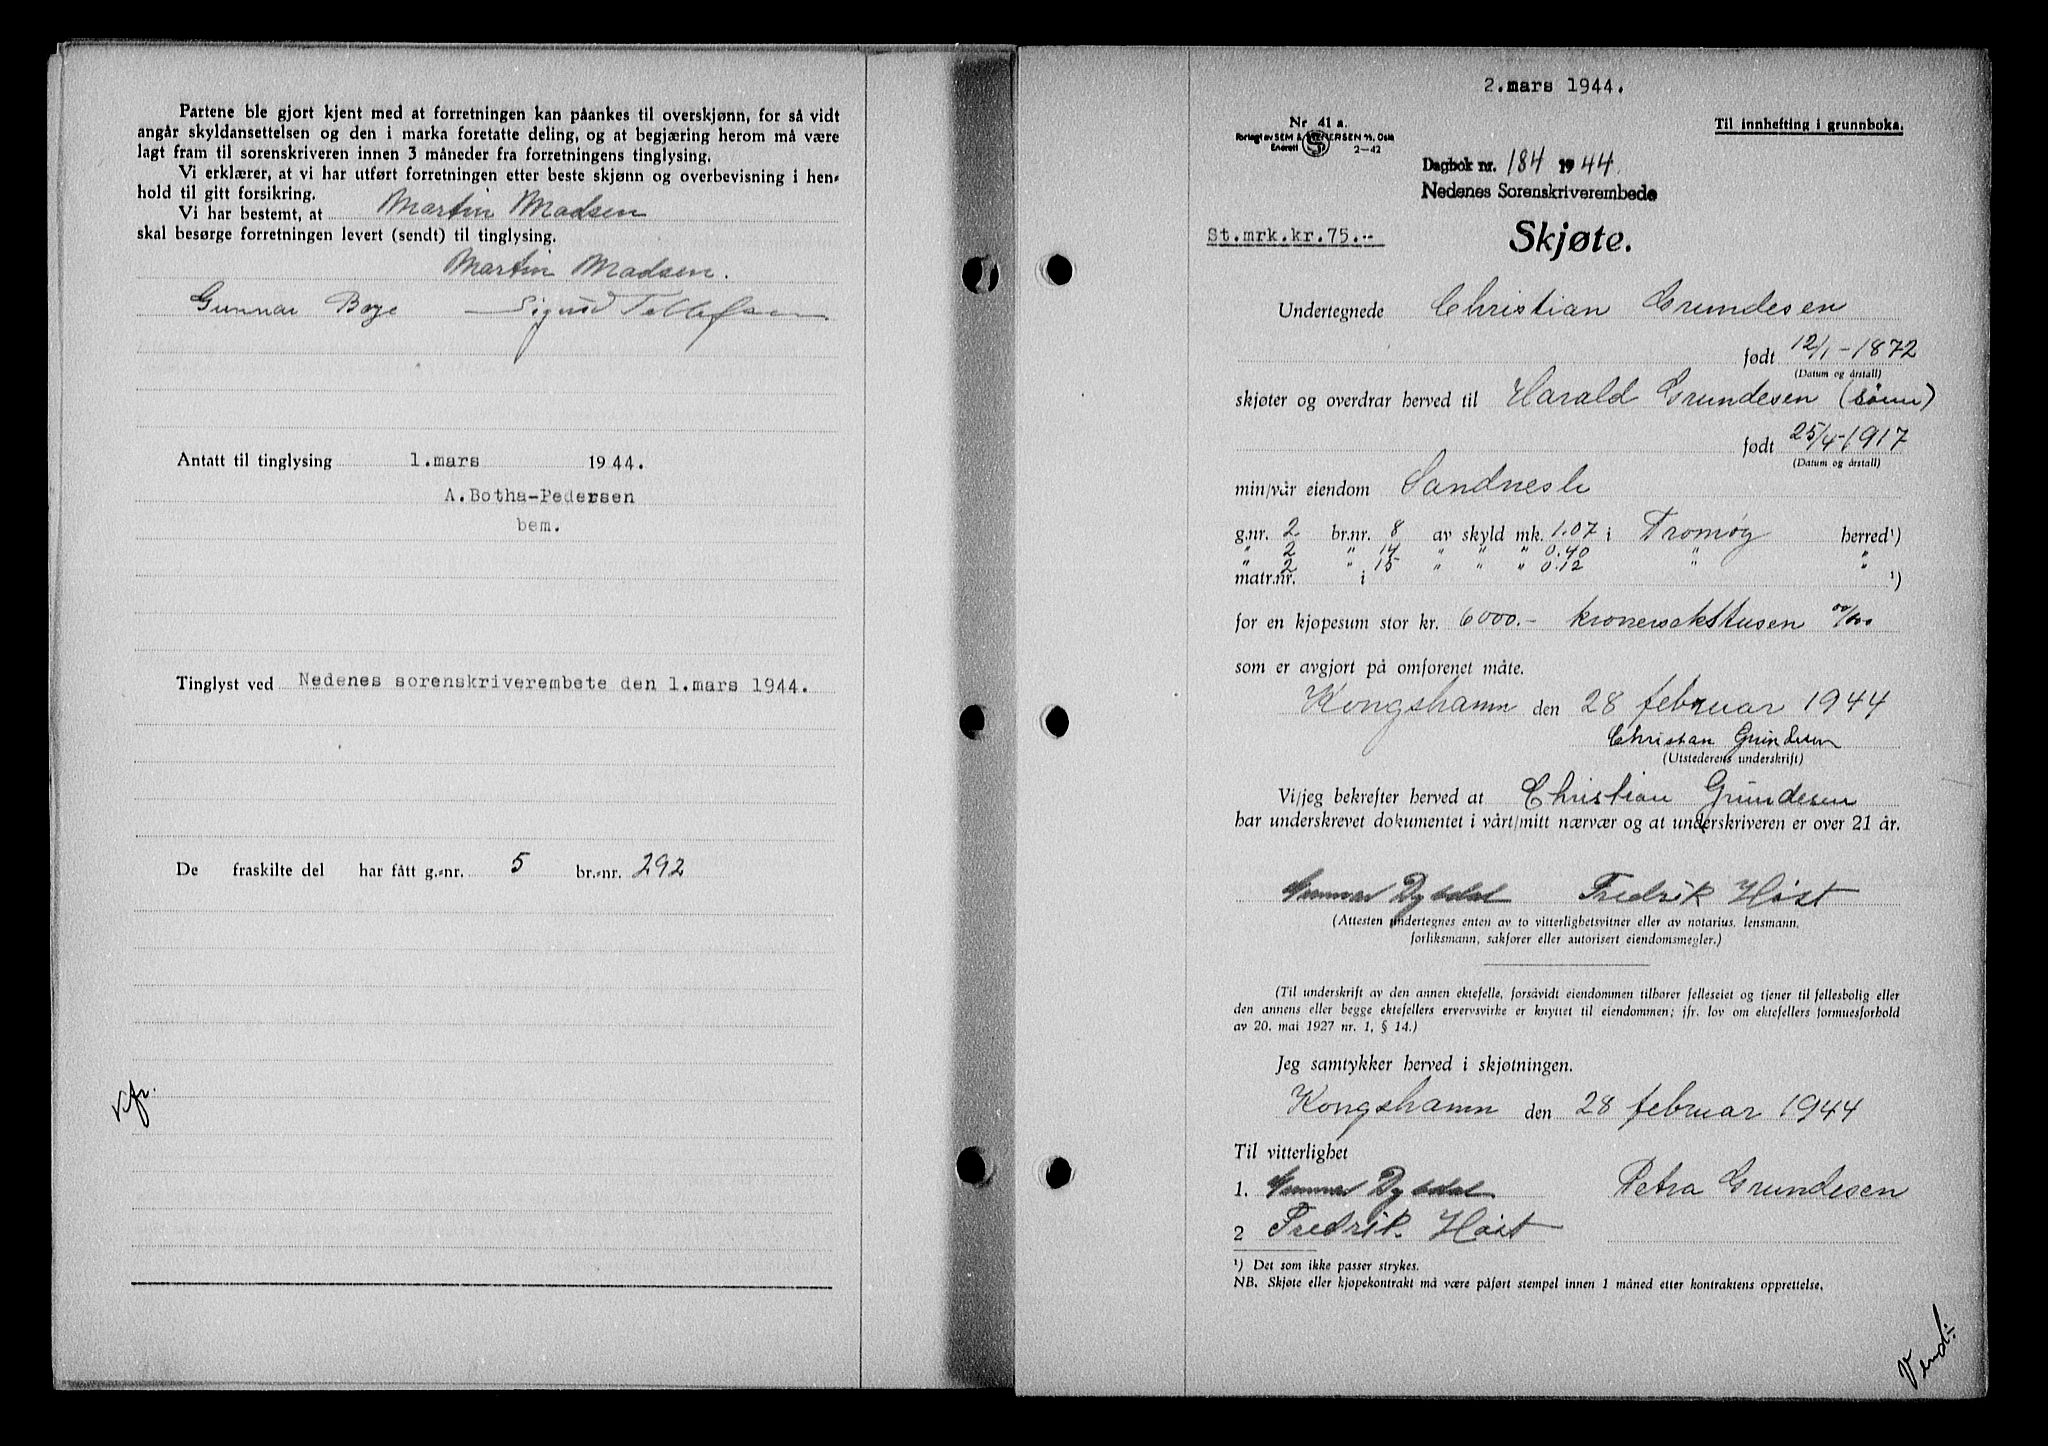 Partene ble gjort kjent med at forretningen kan påankes til overskjønn, for så vidt
angår skyldansettelsen og den i marka foretatte deling, og at begjæring herom må være
lagt fram til sorenskriveren innen 3 måneder fra forretningens tinglysing.
Vi erklærer, at vi har utført forretningen etter beste skjønn og overbevisning i hen-
hold til gitt forsikring.
Vi har bestemt, at Martin Madsen
skal besørge forretningen levert (sendt) til tinglysing.
Martin Madsen.
Gunnar Boye Sigurd Tellefsen
Antatt til tinglysing 1.mars 1944.
A.Botha-Pedersen
bem.
Tinglyst ved Nedenes sorenskriverembete den 1.mars 1944.
De fraskilte del har fått g.-nr. 5 br.-nr. 292
Kfr.
2.mars 1944.
Nr 41 a.
Forlagt av SEM & STENERSEN A/S, Oslo
Enerett 2-42
Til innhefting i grunnboka.
Dagbok nr. 184 1944.
Nedenes Sorenskriverembede
St.mrk.kr.75.--
Skjøte.
Undertegnede Christian Grundesen
født 12/1-1872
(Datum og årstall)
skjøter og overdrar herved til Harald Grundesen (sønn)
født 25/4-1917
(Datum og årstall)
min/vår eiendom Sandnesli
g.nr. 2 br.nr. 8 av skyld mk. 1.07 i Tromøy herred¹)
" 2 " 14 " " " 0.40 " "
" 2 " 15 " " " 0.12
matr.nr. i ¹)
for en kjøpesum stor kr. 6000.- kronersekstusen 00/100
som er avgjort på omforenet måte.
Kongshamn den 28 februar 1944
Christian Grundesen
(Utstederens underskrift)
Vi/jeg bekrefter herved at Christian Grundesen
har underskrevet dokumentet i vårt/mitt nærvær og at underskriveren er over 21 år.
Gunnar Dybdal Fredrik Høst
(Attesten undertegnes enten av to vitterlighetsvitner eller av notarius, lensmann,
forliksmann, sakfører eller autorisert eiendomsmegler.)
(Til underskrift av den annen ektefelle, forsåvidt eiendommen tilhører felleseiet og tjener til fellesbolig eller
den annens eller begge ektefellers ervervsvirke er knyttet til eiendommen; jfr. lov om ektefellers formuesforhold
av 20. mai 1927 nr. 1, § 14.)
Jeg samtykker herved i skjøtningen.
Kongshamn den 28 februar 1944
Til vitterlighet
1. Gunnar Dybdal Petra Grundesen
2 Fredrik Høst
¹) Det som ikke passer strykes.
NB. Skjøte eller kjøpekontrakt må være påført stempel innen 1 måned etter kontraktens opprettelse.
Vend: